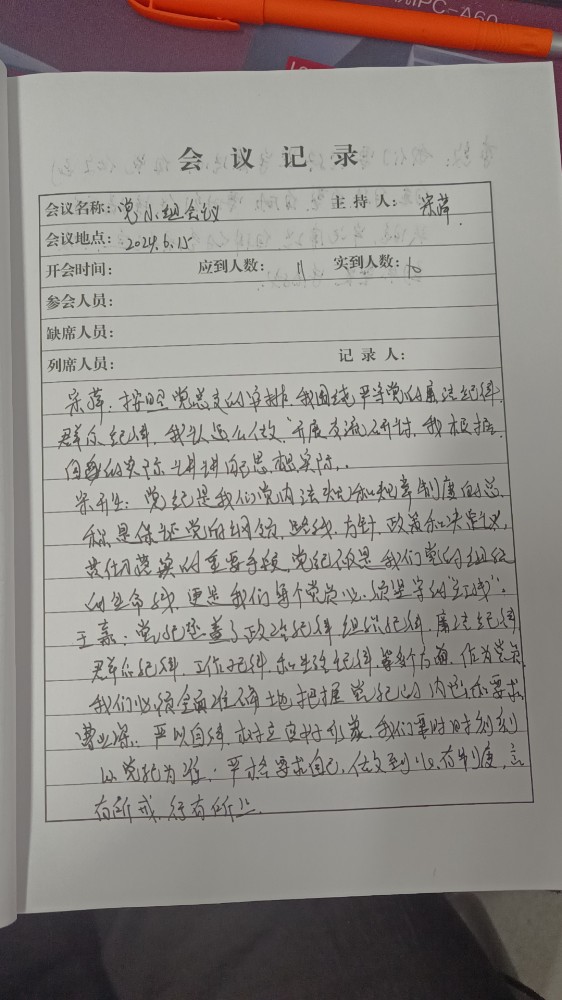 IPC-A60
会议记录
会议名称：党小组会议 主持人：宋萍
会议地点：2024.6.15
开会时间： 应到人数：11 实到人数：10
参会人员：
缺席人员：
列席人员： 记录人：
宋萍：按照党总支的安排，我围绕严守党的廉洁纪律，
群众纪律，我认怎么做，开展交流研讨，我根据
自身的实际，讲讲自己思想实际。
党纪是我们党内法规和规章制度的总
称，是保证党的纲领、路线、方针、政策和决议，
贯彻落实的重要手段，党纪不仅是我们党的组织
的生命线，更是我们每个党员必须坚守的"红线"。
王嘉：党纪涵盖了政治纪律，组织纪律，廉洁纪律，
群众纪律，工作纪律，和生活纪律，等多个方面，作为党员
我们必须全面准确地把握党纪的内涵和要求，
严以自律，树立良好形象，我们要时时刻刻
以党纪为 严格要求自己，做到心有制度，言
有所戒，行有所止。